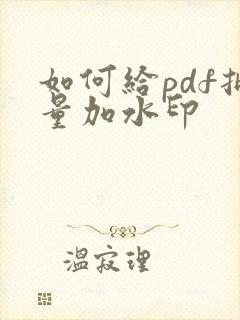 如何給pdf批
量加水印
溫寂理